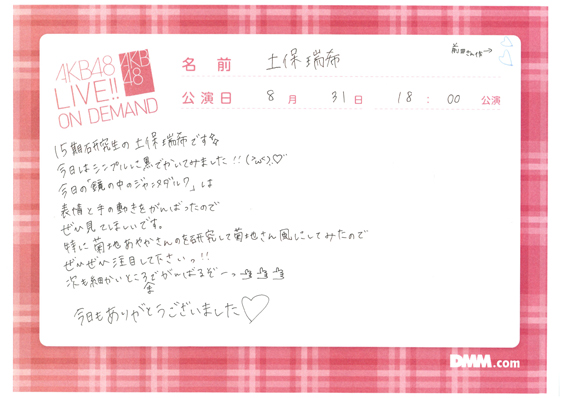 AKB48
LIVE!!
ON DEMAND
AKB
48
名前 土保瑞希
前田さん作→
公演日 8月 31日 18:00 公演
15期研究生の土保瑞希です☆
今日はシンプルに黒でかいてみました!!(>ω<)♡
今日の「鏡の中のジャンヌダルク」は
表情と手の動きをがんばったので
ぜひ見てほしいです。
特に菊地あやかさんのを研究して菊地さん風にしてみたので
ぜひぜひ注目して下さいっ!!
次も細かいところまでがんばるぞーっ
今日もありがとうございました♡
DMM.com